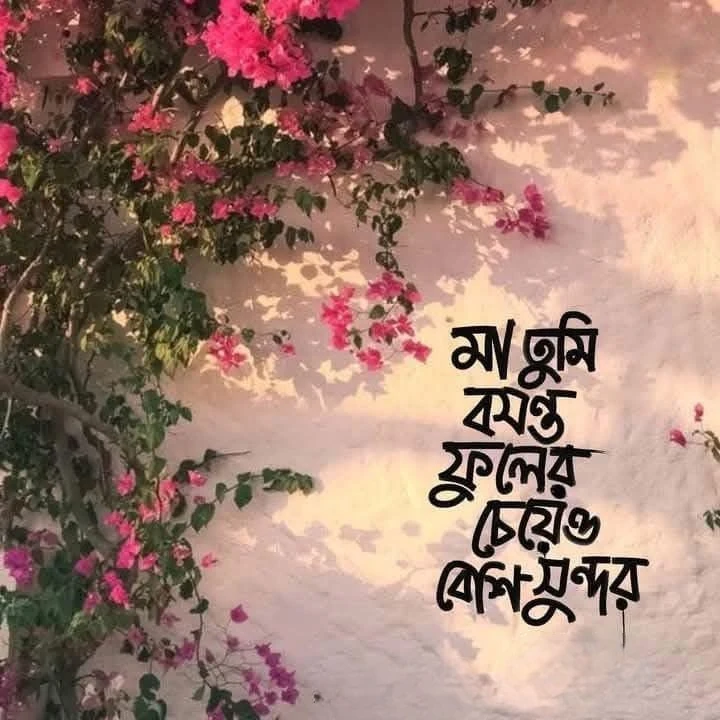 মা তুমি
বসন্ত
ফুলের
চেয়েও
বেশি সুন্দর